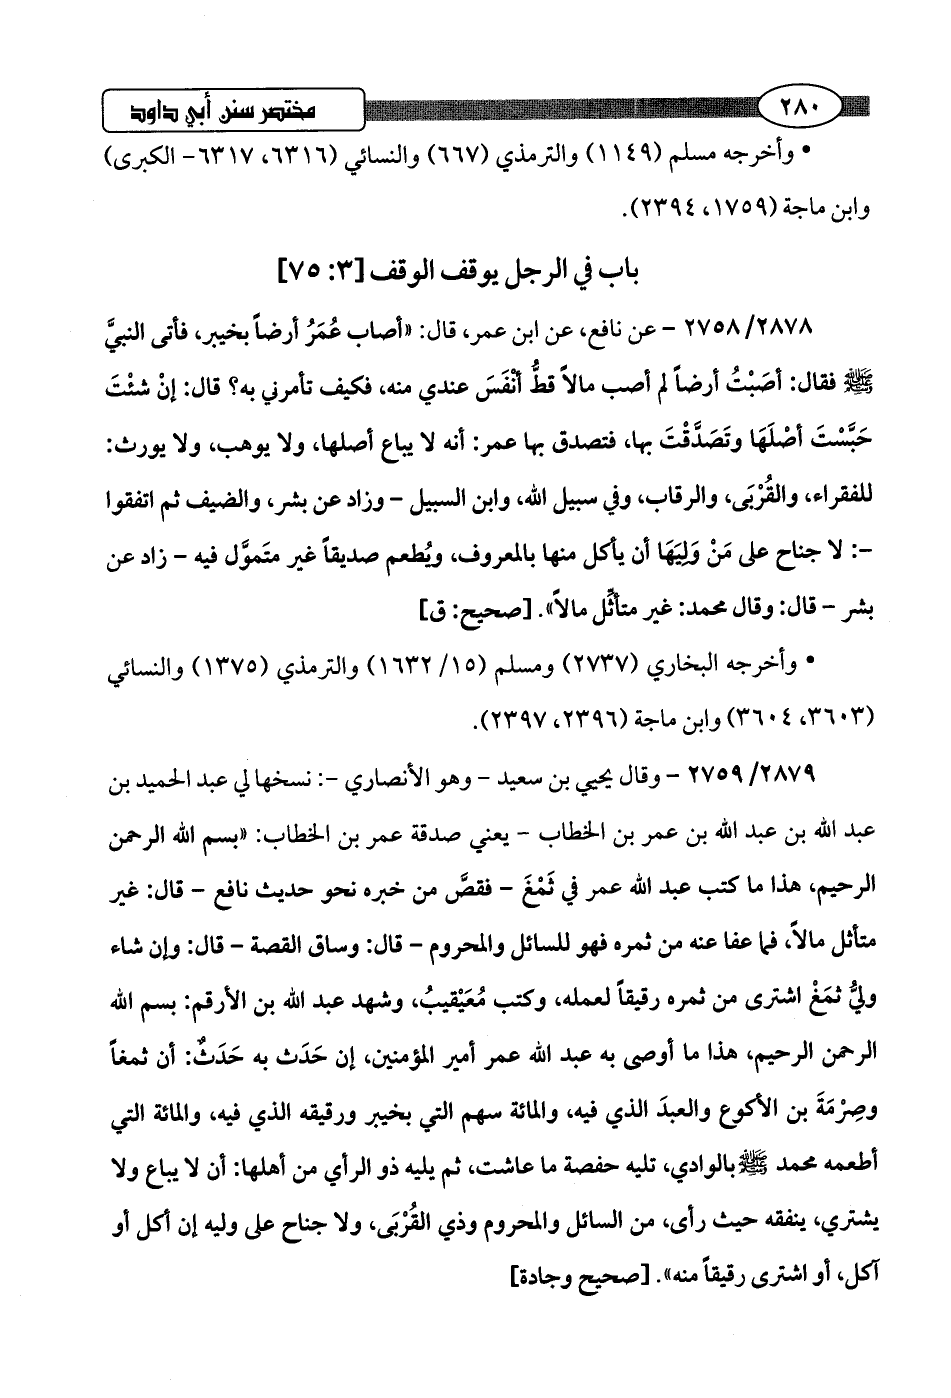 ٢٨٠ مختصر سنن أبي داود
• وأخرجه مسلم (١١٤٩) والترمذي (٦٦٧) والنسائي (٦٣١٦، ٦٣١٧- الكبرى)
وابن ماجة (١٧٥٩، ٢٣٩٤).
باب في الرجل يوقف الوقف [٣: ٧٥]
٢٧٥٨/٢٨٧٨ - عن نافع، عن ابن عمر، قال: «أصاب عُمَرُ أرضاً بخيبر، فأتى النبيَّ
ﷺ فقال: أصَبْتُ أرضاً لم أصب مالاً قطُّ أنْفَسَ عندي منه، فكيف تأمرني به؟ قال: إنْ شئْتَ
حَبَّسْتَ أصْلَهَا وتَصَدَّقْتَ بها، فتصدق بها عمر: أنه لا يباع أصلها، ولا يوهب، ولا يورث:
للفقراء، والقُرْبَى، والرقاب، وفي سبيل الله، وابن السبيل - وزاد عن بشر، والضيف ثم اتفقوا
-: لا جناح على مَنْ وَلِيَهَا أن يأكل منها بالمعروف، ويُطعم صديقاً غير متموَّل فيه - زاد عن
بشر - قال: وقال محمد: غير متأثِّل مالاً». [صحيح: ق]
• وأخرجه البخاري (٢٧٣٧) ومسلم (١٥/ ١٦٣٢) والترمذي (١٣٧٥) والنسائي
(٣٦٠٣، ٣٦٠٤) وابن ماجة (٢٣٩٦، ٢٣٩٧).
٢٧٥٩/٢٨٧٩ - وقال يحيى بن سعيد - وهو الأنصاري -: نسخها لي عبد الحميد بن
عبد الله بن عبد الله بن عمر بن الخطاب - يعني صدقة عمر بن الخطاب: «بسم الله الرحمن
الرحيم، هذا ما كتب عبد الله عمر في ثَمْغَ - فقصَّ من خبره نحو حديث نافع - قال: غير
متأثل مالاً، فما عفا عنه من ثمره فهو للسائل والمحروم - قال: وساق القصة - قال: وإن شاء
وليُّ ثمَغْ اشترى من ثمره رقيقاً لعمله، وكتب مُعَيْقيبُ، وشهد عبد الله بن الأرقم: بسم الله
الرحمن الرحيم، هذا ما أوصى به عبد الله عمر أمير المؤمنين، إن حَدَث به حَدَثٌ: أن ثمغاً
وصِرْمَةَ بن الأكوع والعبدَ الذي فيه، والمائة سهم التي بخيبر ورقيقه الذي فيه، والمائة التي
أطعمه محمد ﷺ بالوادي، تليه حفصة ما عاشت، ثم يليه ذو الرأي من أهلها: أن لا يباع ولا
يشتري، ينفقه حيث رأى، من السائل والمحروم وذي القُرْبَى، ولا جناح على وليه إن أكل أو
آكل، أو اشترى رقيقاً منه». [صحيح وجادة]